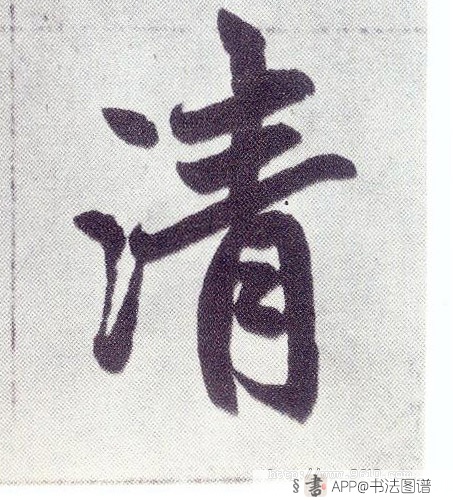 清
§ 書 APP@书法图谱